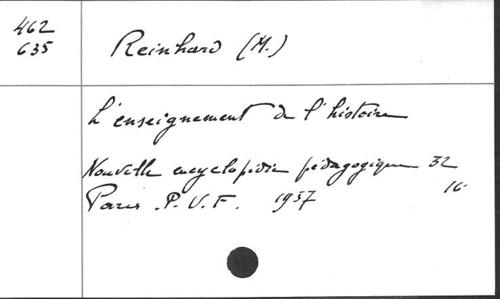 462
635
Reinhard (M.)
L'enseignement de l'histoire
Nouvelle encyclopédie pédagogique 32
Paris. P.U.F. 1957 16